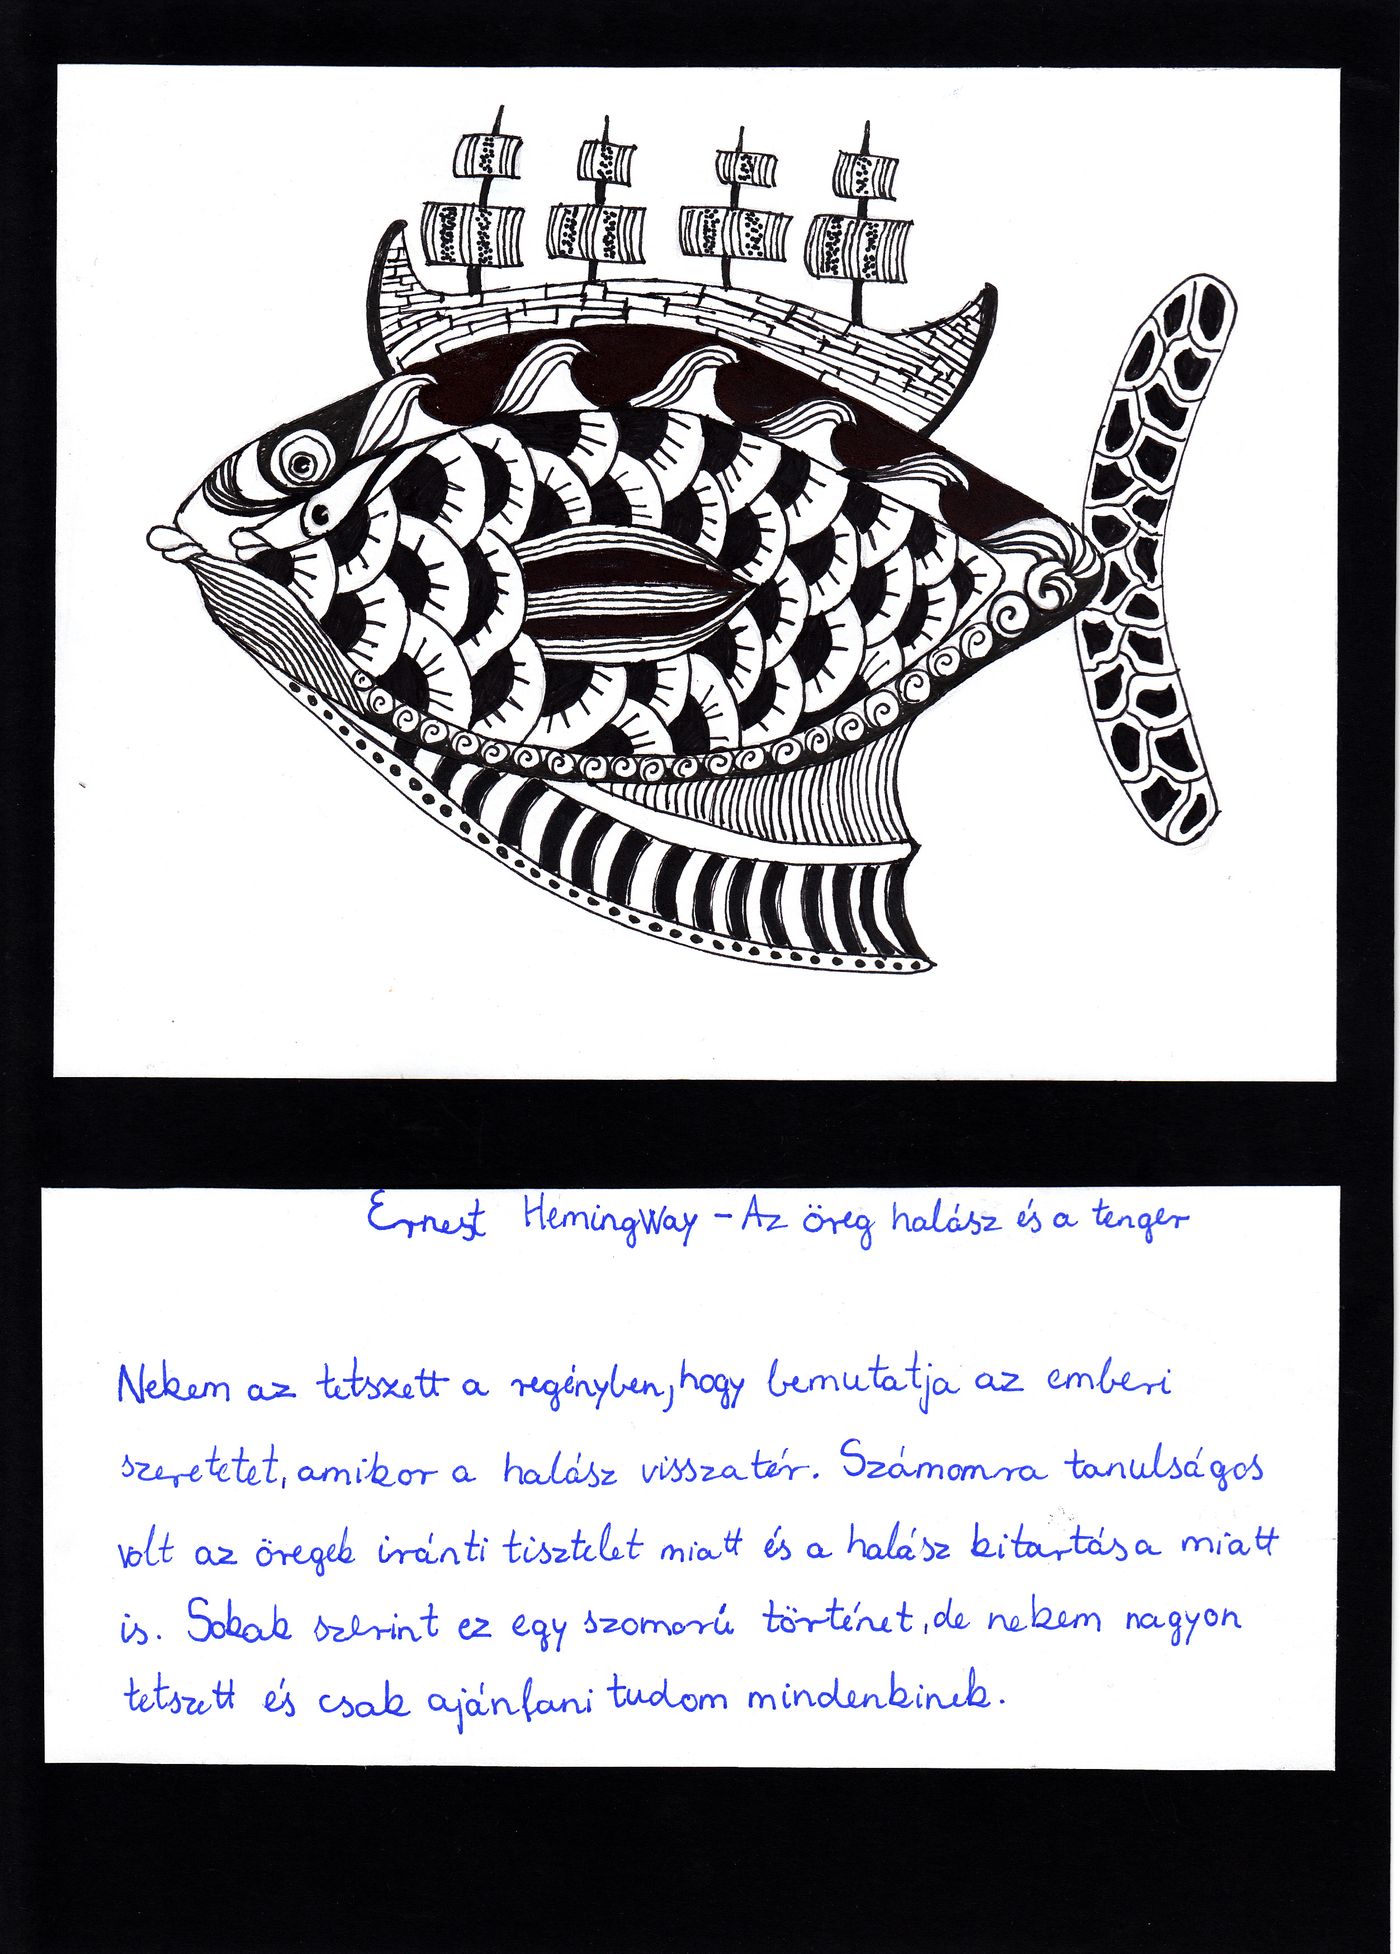 Ernest HemingWay - Az öreg halász és a tenger
Nekem az tetszett a regényben, hogy bemutatja az emberi
szeretetet, amikor a halász visszatér. Számomra tanulságos
volt az öregek iránti tisztelet miatt és a halász kitartása miatt
is. Sokak szerint ez egy szomorú történet, de nekem nagyon
tetszett és csak ajánlani tudom mindenkinek.